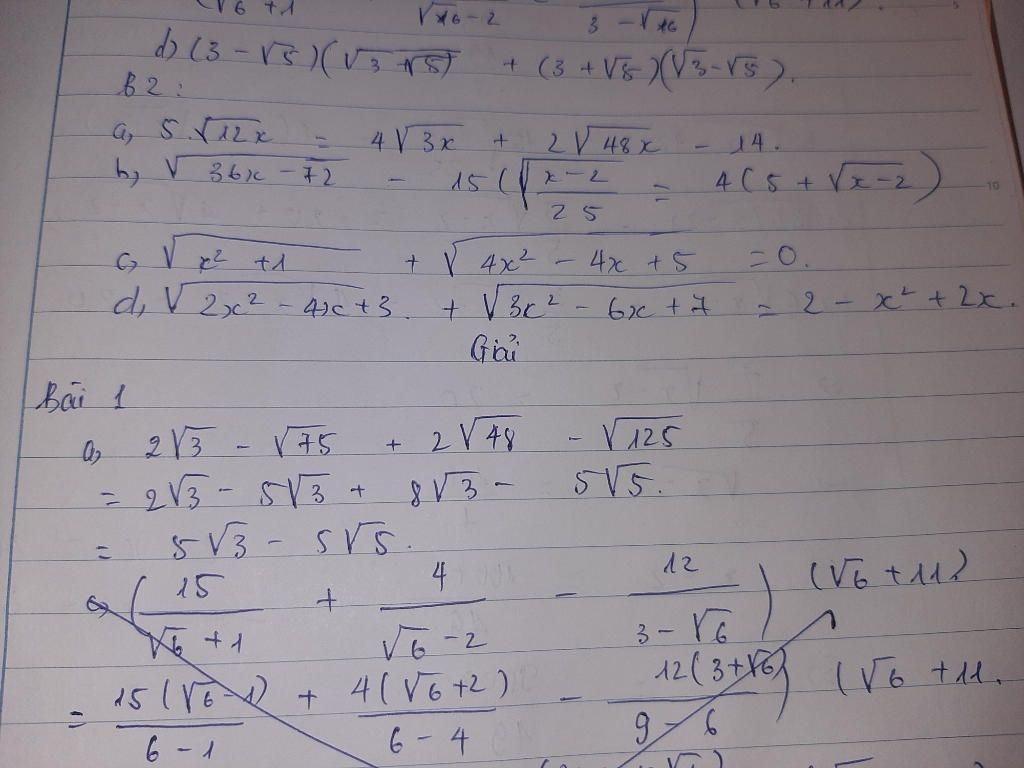 (√6 + 1   √16 - 2   3 - √16)   (√6 + 11).
d) (3 - √5)(√3 + √5) + (3 + √5)(√3 - √5).
B2:
a, 5√12x = 4√3x + 2√48x - 14.
b, √36x - 72 - 15(√(x-2)/25 = 4(5 + √x-2)
10
c, √x² + 1 + √4x² - 4x + 5 = 0.
d, √2x² - 4x + 3. + √3x² - 6x + 7 = 2 - x² + 2x.
Giải
Bài 1
a, 2√3 - √75 + 2√48 - √125
= 2√3 - 5√3 + 8√3 - 5√5.
= 5√3 - 5√5.
c, (15/(√6 + 1) + 4/(√6 - 2) - 12/(3 - √6)) (√6 + 11)
= 15(√6 - 1)/(6 - 1) + 4(√6 + 2)/(6 - 4) - 12(3 + √6)/(9 - 6)) (√6 + 11.